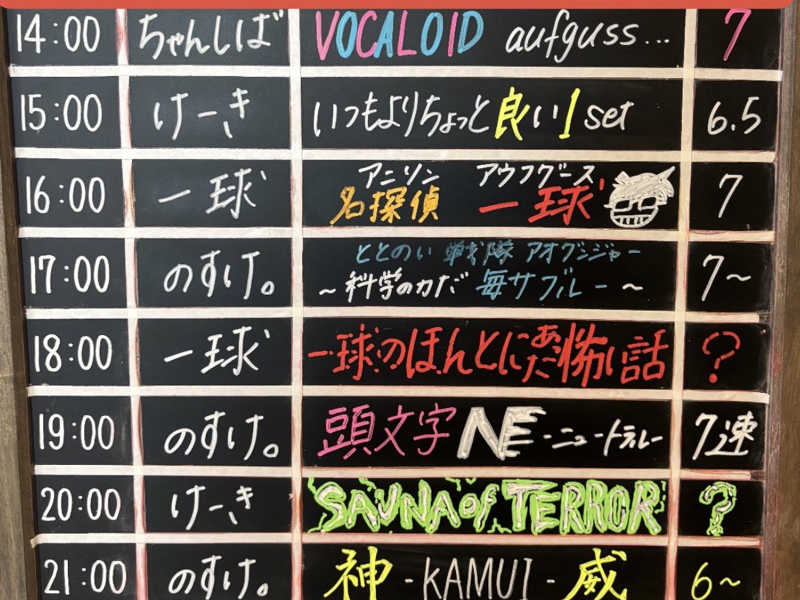 14:00 ちゃんしば VOCALOID aufguss... 7
15:00 けーき いつもよりちょっと良い1set 6.5
16:00 一球 アニソン アウフグース 7
名探偵 一球
17:00 のすけ。 ととのい戦隊 アオグンジャー 7~
~科学の力だ 毎サブルー~
18:00 一球 一球のほんとにあった怖い話 ?
19:00 のすけ。 頭文字NE-ニュートラル- 7速
20:00 けーき SAUNA of TERROR ?
21:00 のすけ。 神-KAMUI-威 6~